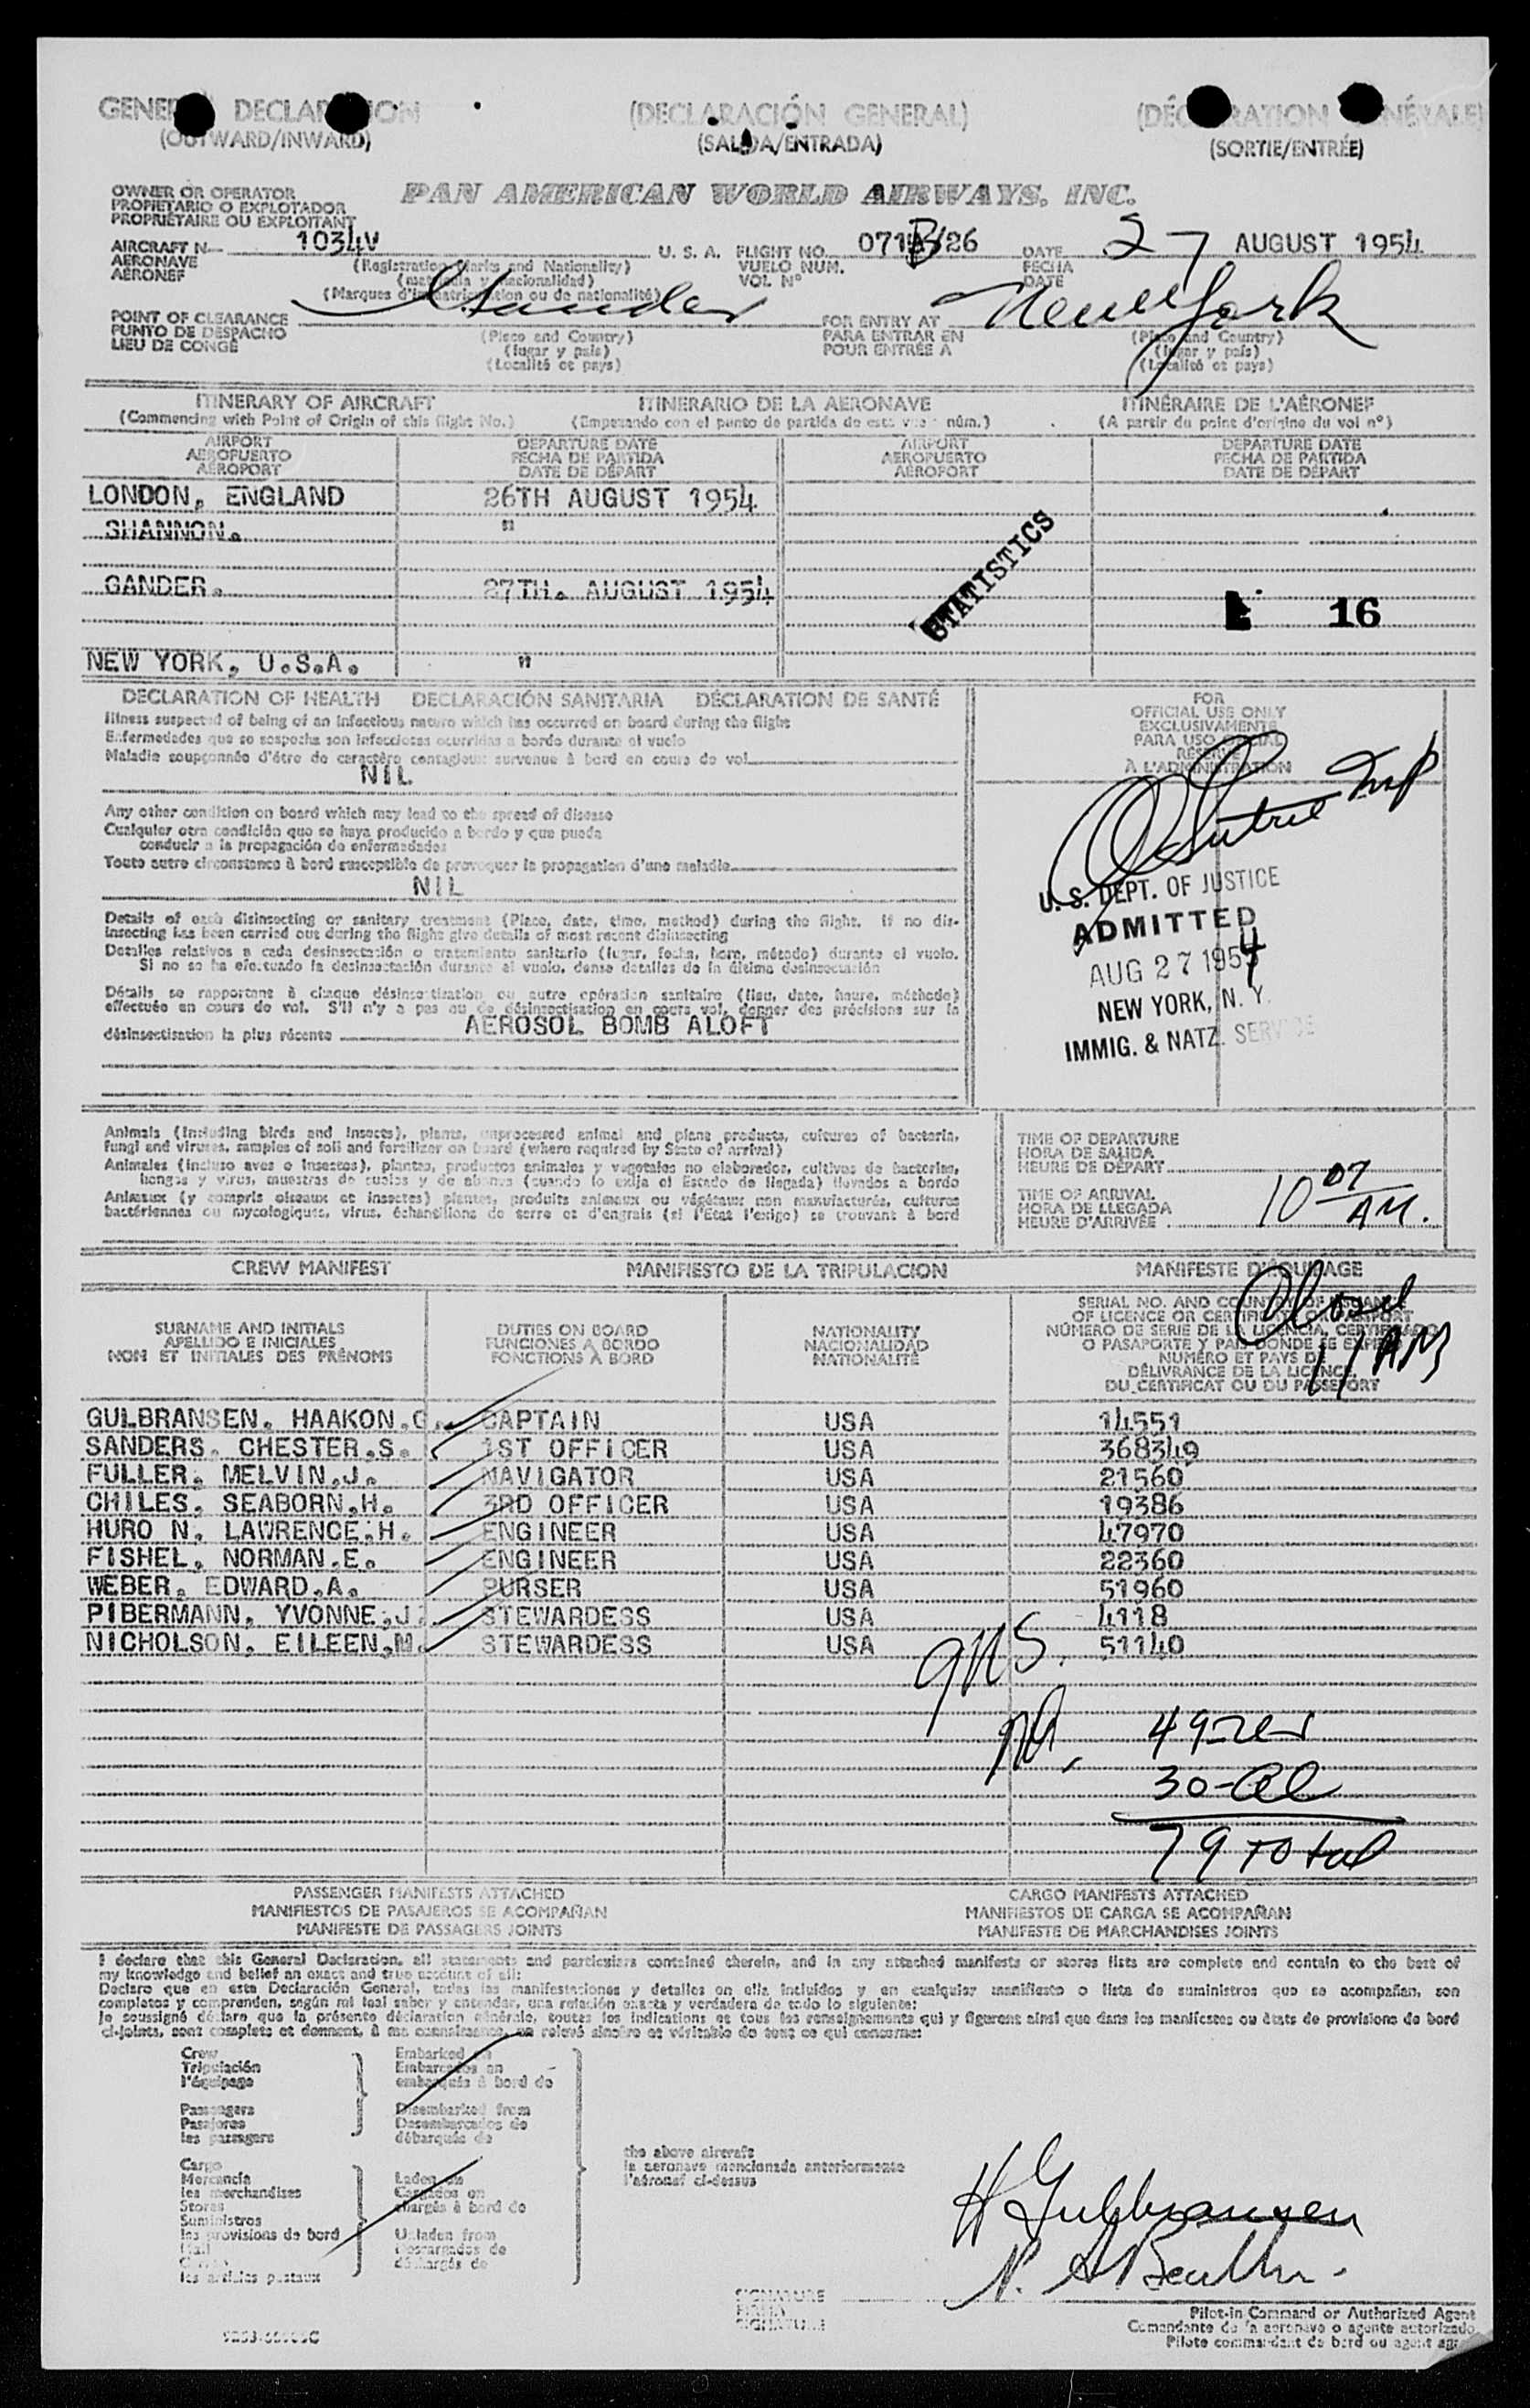 GENERAL DECLARATION (DECLARACIÓN GENERAL) (DÉCLARATION GÉNÉRALE)
(OUTWARD/INWARD) (SALIDA/ENTRADA) (SORTIE/ENTRÉE)
OWNER OR OPERATOR
PROPIETARIO O EXPLOTADOR
PROPRIÉTAIRE OU EXPLOITANT
PAN AMERICAN WORLD AIRWAYS, INC.
AIRCRAFT Nº 1034V U. S. A. FLIGHT NO. 071B/26 DATE 27 AUGUST 1954
AERONAVE (Registration Marks and Nationality) VUELO NUM. FECHA
AÉRONEF (matrícula y nacionalidad) VOL Nº DATE
(Marques d'immatriculation ou de nationalité)
POINT OF CLEARANCE Gander FOR ENTRY AT New York
PUNTO DE DESPACHO (Place and Country) PARA ENTRAR EN (Place and Country)
LIEU DE CONGÉ (lugar y país) POUR ENTRÉE A (lugar y país)
(Localité et pays) (Localité et pays)
ITINERARY OF AIRCRAFT ITINERARIO DE LA AERONAVE ITINÉRAIRE DE L'AÉRONEF
(Commencing with Point of Origin of this flight No.) (Empezando con el punto de partida de este vuelo núm.) (A partir du point d'origine du vol nº)
AIRPORT DEPARTURE DATE AIRPORT DEPARTURE DATE
AEROPUERTO FECHA DE PARTIDA AEROPUERTO FECHA DE PARTIDA
AÉROPORT DATE DE DÉPART AÉROPORT DATE DE DÉPART
LONDON, ENGLAND 26TH AUGUST 1954
SHANNON. "
STATISTICS
GANDER. 27TH. AUGUST 1954
16
NEW YORK, U.S.A. "
DECLARATION OF HEALTH DECLARACIÓN SANITARIA DÉCLARATION DE SANTÉ
Illness suspected of being of an infectious nature which has occurred on board during the flight
Enfermedades que se sospecha son infecciosas ocurridas a bordo durante el vuelo
Maladie soupçonnée d'être de caractère contagieux survenue à bord en cours de vol
NIL
Any other condition on board which may lead to the spread of disease
Cualquier otra condición que se haya producido a bordo y que pueda
conducir a la propagación de enfermedades
Toute autre circonstance à bord susceptible de provoquer la propagation d'une maladie
NIL
Details of each disinsecting or sanitary treatment (Place, date, time, method) during the flight. If no dis-
insecting has been carried out during the flight give details of most recent disinsecting
Detalles relativos a cada desinsectación o tratamiento sanitario (lugar, fecha, hora, método) durante el vuelo.
Si no se ha efectuado la desinsectación durante el vuelo, dense detalles de la última desinsectación
Détails se rapportant à chaque désinsectisation ou autre opération sanitaire (lieu, date, heure, méthode)
effectuée en cours de vol. S'il n'y a pas eu de désinsectisation en cours vol, donner des précisions sur la
désinsectisation la plus récente AEROSOL BOMB ALOFT
FOR
OFFICIAL USE ONLY
EXCLUSIVAMENTE
PARA USO OFICIAL
RÉSERVÉ
À L'ADMINISTRATION
U. S. DEPT. OF JUSTICE
ADMITTED
AUG 27 1954
NEW YORK, N. Y.
IMMIG. & NATZ. SERVICE
Animals (including birds and insects), plants, unprocessed animal and plant products, cultures of bacteria,
fungi and viruses, samples of soil and fertilizer on board (where required by State of arrival)
Animales (incluso aves e insectos), plantas, productos animales y vegetales no elaborados, cultivos de bacterias,
hongos y virus, muestras de suelos y de abonos (cuando lo exija el Estado de llegada) llevados a bordo
Animaux (y compris oiseaux et insectes) plantes, produits animaux ou végétaux non manufacturés, cultures
bactériennes ou mycologiques, virus, échantillons de terre et d'engrais (si l'Etat l'exige) se trouvant à bord
TIME OF DEPARTURE
HORA DE SALIDA
HEURE DE DÉPART
TIME OF ARRIVAL
HORA DE LLEGADA
HEURE D'ARRIVÉE 10 07 AM.
CREW MANIFEST MANIFIESTO DE LA TRIPULACION MANIFESTE D'ÉQUIPAGE
SURNAME AND INITIALS
APELLIDO E INICIALES
NOM ET INITIALES DES PRÉNOMS
DUTIES ON BOARD
FUNCIONES A BORDO
FONCTIONS À BORD
NATIONALITY
NACIONALIDAD
NATIONALITÉ
SERIAL NO. AND COUNTRY OF ISSUANCE
OF LICENCE OR CERTIFICATE OR PASSPORT
NÚMERO DE SERIE DE LA LICENCIA, CERTIFICADO
O PASAPORTE Y PAIS DONDE SE EXPIDIÓ
NUMÉRO ET PAYS DE
DÉLIVRANCE DE LA LICENCE,
DU CERTIFICAT OU DU PASSEPORT
Closed
11 AM
GULBRANSEN, HAAKON.G. CAPTAIN USA 14551
SANDERS, CHESTER.S. 1ST OFFICER USA 368349
FULLER, MELVIN.J. NAVIGATOR USA 21560
CHILES, SEABORN.H. 3RD OFFICER USA 19386
HURO N, LAWRENCE.H. ENGINEER USA 47970
FISHEL, NORMAN.E. ENGINEER USA 22360
WEBER, EDWARD.A. PURSER USA 51960
PIBERMANN, YVONNE.J. STEWARDESS USA 4118
NICHOLSON, EILEEN.M. STEWARDESS USA 51140
49
30-al
79 Total
PASSENGER MANIFESTS ATTACHED CARGO MANIFESTS ATTACHED
MANIFIESTOS DE PASAJEROS SE ACOMPAÑAN MANIFIESTOS DE CARGA SE ACOMPAÑAN
MANIFESTE DE PASSAGERS JOINTS MANIFESTE DE MARCHANDISES JOINTS
I declare that this General Declaration, all statements and particulars contained therein, and in any attached manifests or stores lists are complete and contain to the best of
my knowledge and belief an exact and true account of all:
Declaro que en esta Declaración General, todas las manifestaciones y detalles en ella incluidos y en cualquier manifiesto o lista de suministros que se acompañan, son
completos y comprenden, según mi leal saber y entender, una relación exacta y verdadera de todo lo siguiente:
Je soussigné déclare que la présente déclaration générale, toutes les indications et tous les renseignements qui y figurent ainsi que dans les manifestes ou états de provisions de bord
ci-joints, sont complets et donnent, à ma connaissance, un relevé sincère et véritable de tout ce qui concerne:
Crew Embarked on
Tripulación Embarcados en
l'équipage embarqués à bord de
Passengers Disembarked from
Pasajeros Desembarcados de
les passagers débarqués de
the above aircraft
la aeronave mencionada anteriormente
l'aéronef ci-dessus
Cargo
Mercancía Laden on
les merchandises Cargados en
Stores chargés à bord de
Suministros
les provisions de bord Unladen from
Mail Descargados de
Correo déchargés de
les articles postaux
H Gulbransen
SIGNATURE
FIRMA
SIGNATURE
Pilot-in Command or Authorized Agent
Comandante de la aeronave o agente autorizado
Pilote commandant de bord ou agent